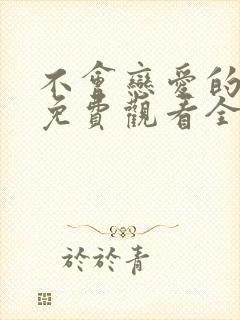 不會戀愛的
免費觀看全
於於青